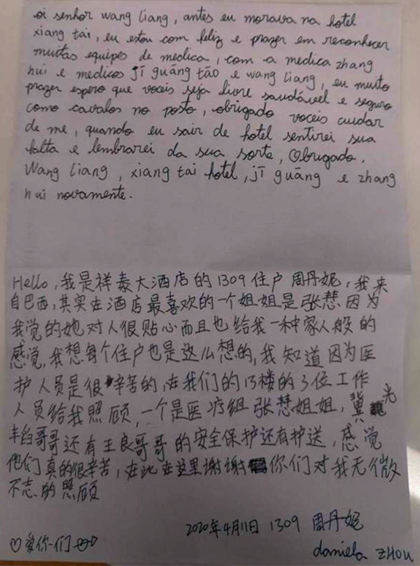 oi senhor wang liang, antes eu morava na hotel
xiang tai, eu estou com feliz e prazer em reconhecer
muitas equipes de medica, com a medica zhang
hui e medicos jī guāng tāo e wang liang, eu muito
prazer espero que voceis seja livre saudável e seguro
como cavalos no posto, obrigado voceis cuidar
de me, quando eu sair de hotel sentirei sua
falta e lembrarei da sua sorte, Obrigado,
Wang liang, xiang tai hotel, jī guāng e zhang
hui novamente.
Hello,我是祥泰大酒店的1309住户周丹妮,我来
自巴西,其实在酒店最喜欢的一个姐姐是张慧因为
我觉的她对人很贴心而且也给我一种家人般的
感觉,我想每个住户也是这么想的,我知道因为医
护人员是很辛苦的,在我们的13楼的3位工作
人员给我照顾,一个是医疗组张慧姐姐,冀光
韬哥哥还有王良哥哥的安全保护还有护送,感觉
他们真的很辛苦,在此在这里谢谢你们对我无微
不志的照顾
2020年4月11日 1309 周丹妮
♡爱你们♡
daniela ZHOU